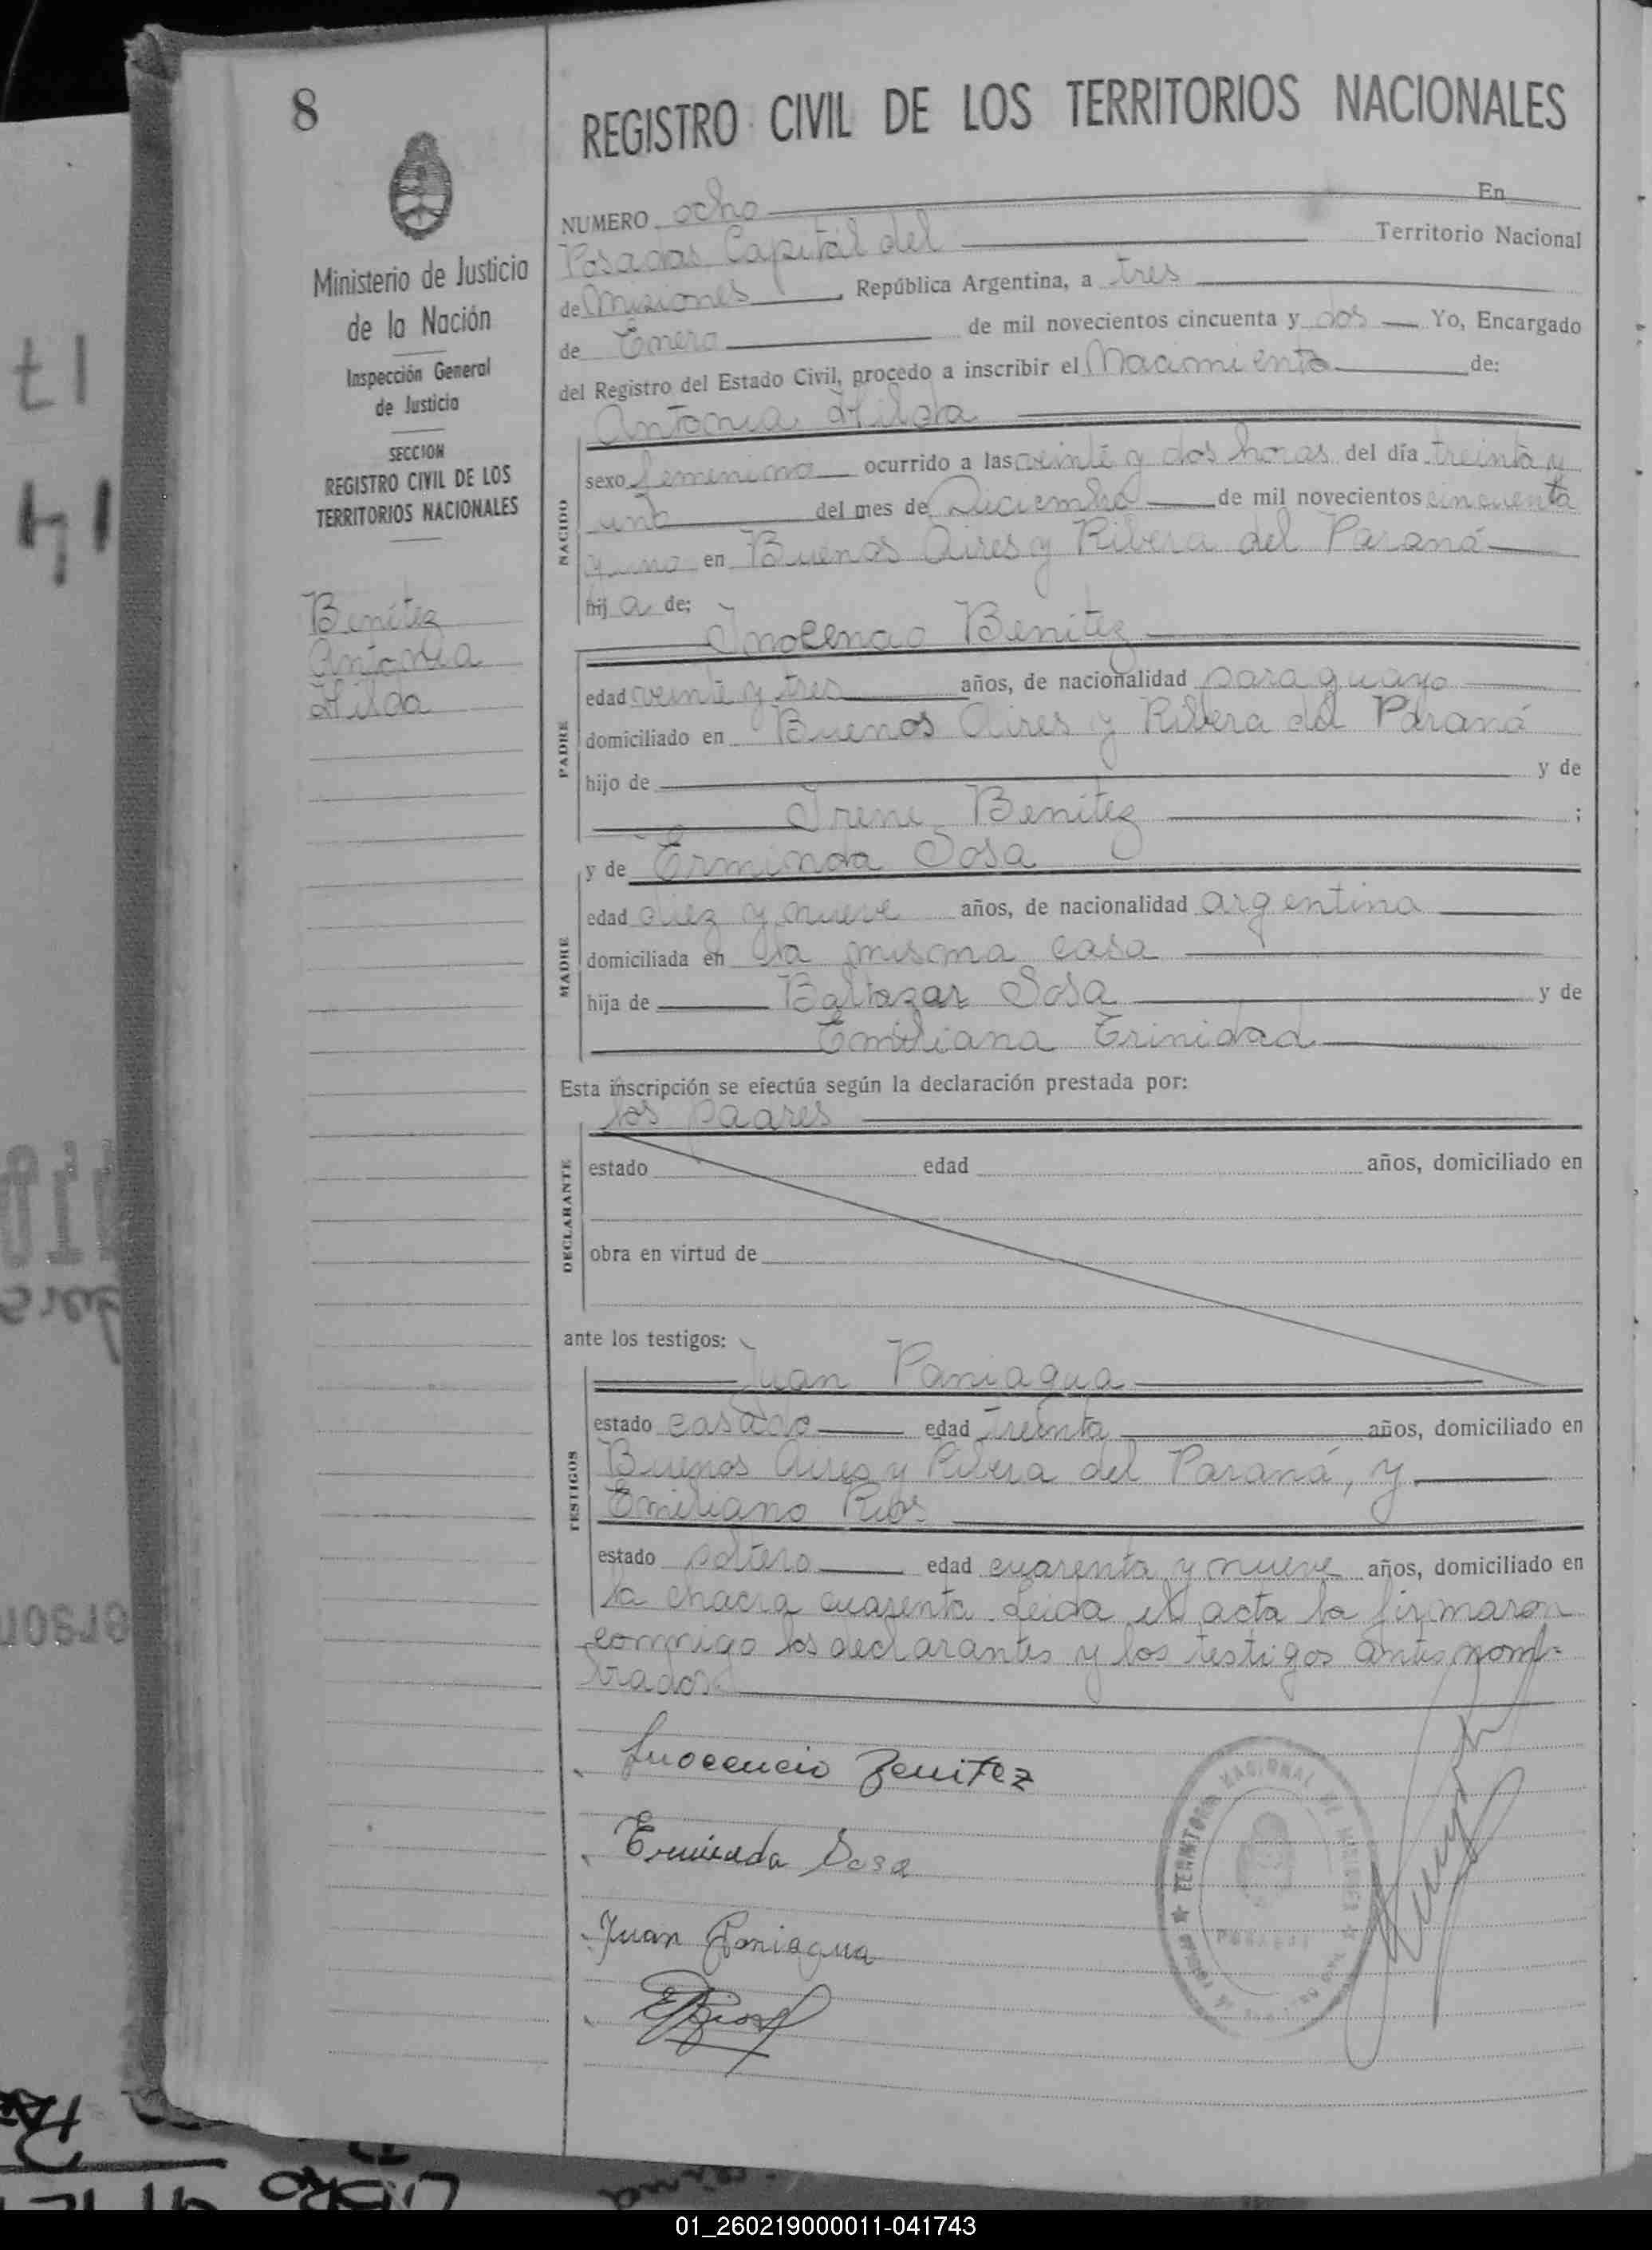 8
REGISTRO CIVIL DE LOS TERRITORIOS NACIONALES
Ministerio de Justicia
de la Nación
Inspección General
de Justicia
SECCION
REGISTRO CIVIL DE LOS
TERRITORIOS NACIONALES
Benítez
Antonia
Hilda
NUMERO ocho En
Posadas Capital del Territorio Nacional
de Misiones, República Argentina, a tres
de Enero de mil novecientos cincuenta y dos Yo, Encargado
del Registro del Estado Civil, procedo a inscribir el Nacimiento de:
Antonia Hilda
NACIDO
sexo femenino ocurrido a las veinte y dos horas del día treinta y
uno del mes de Diciembre de mil novecientos cincuenta
y uno en Buenos Aires y Ribera del Paraná
hij a de:
Inocencio Benítez
PADRE
edad veinte y tres años, de nacionalidad paraguayo
domiciliado en Buenos Aires y Ribera del Paraná
hijo de y de
Irene Benítez ;
y de Erminda Sosa
MADRE
edad diez y nueve años, de nacionalidad argentina
domiciliada en la misma casa
hija de Baltazar Sosa y de
Emiliana Trinidad
Esta inscripción se efectúa según la declaración prestada por:
los padres
DECLARANTE
estado edad años, domiciliado en
obra en virtud de
ante los testigos:
Juan Paniagua
TESTIGOS
estado casado edad treinta años, domiciliado en
Buenos Aires y Ribera del Paraná, y
Emiliano Rios
estado soltero edad cuarenta y nueve años, domiciliado en
la chacra cuarenta. Leida el acta la firmaron
conmigo los declarantes y los testigos antes nom-
brados.
Inocencio Benitez
Erminda Sosa
Juan Paniagua
E Rios
TERRITORIO NACIONAL DE MISIONES
POSADAS
01_260219000011-041743